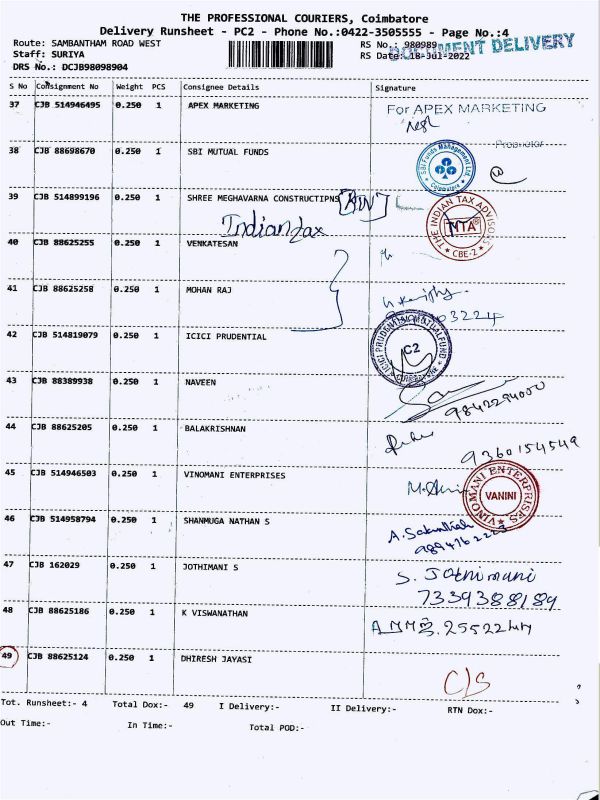 THE PROFESSIONAL COURIERS, Coimbatore
Delivery Runsheet - PC2 - Phone No.:0422-3505555 - Page No.:4
Route: SAMBANTHAM ROAD WEST
RS No.: 980989
DOCUMENT DELIVERY
Staff: SURIYA
RS Date: 18-Jul-2022
DRS No.: DCJB98098904
S No Consignment No Weight PCS Consignee Details Signature
37 CJB 514946495 0.250 1 APEX MARKETING
For APEX MARKETING
Proprietor
38 CJB 88698670 0.250 1 SBI MUTUAL FUNDS
SBI Funds Management Ltd Coimbatore
39 CJB 514899196 0.250 1 SHREE MEGHAVARNA CONSTRUCTIPNS
THE INDIAN TAX ADVISORS
ITA
CBE-2
Indian tax
40 CJB 88625255 0.250 1 VENKATESAN
41 CJB 88625258 0.250 1 MOHAN RAJ
03224
42 CJB 514819079 0.250 1 ICICI PRUDENTIAL
ICICI PRUDENTIAL MUTUAL FUND
C2
COIMBATORE
43 CJB 88389938 0.250 1 NAVEEN
9842294000
44 CJB 88625205 0.250 1 BALAKRISHNAN
9360154549
45 CJB 514946503 0.250 1 VINOMANI ENTERPRISES
VINOMANI ENTERPRISES
VANINI
46 CJB 514958794 0.250 1 SHANMUGA NATHAN S
47 CJB 162029 0.250 1 JOTHIMANI S
S. Jothimani
7339388189
48 CJB 88625186 0.250 1 K VISWANATHAN
49 CJB 88625124 0.250 1 DHIRESH JAYASI
C/S
Tot. Runsheet:- 4 Total Dox:- 49 I Delivery:- II Delivery:- RTN Dox:-
Out Time:- In Time:- Total POD:-